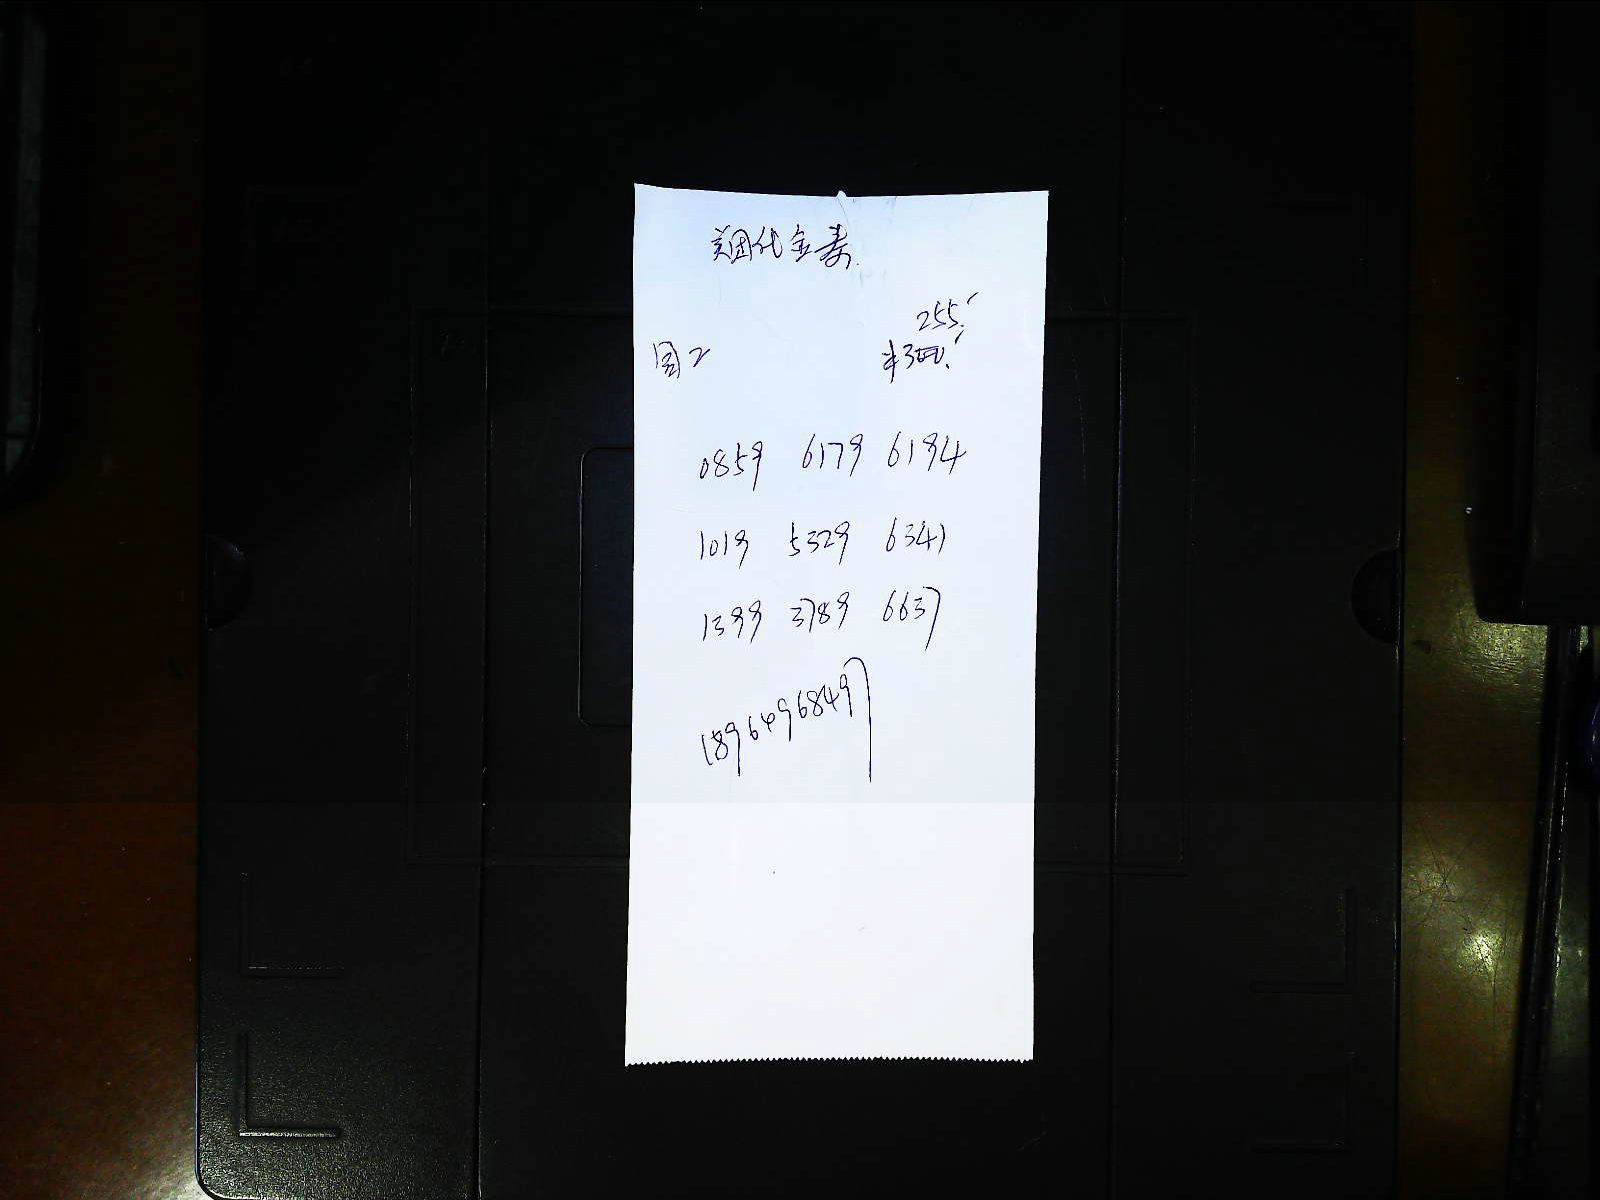 美团代金券
255.
团2
0859 6179 6194
1019 5329 6341
1399 3789 6637
18964968497